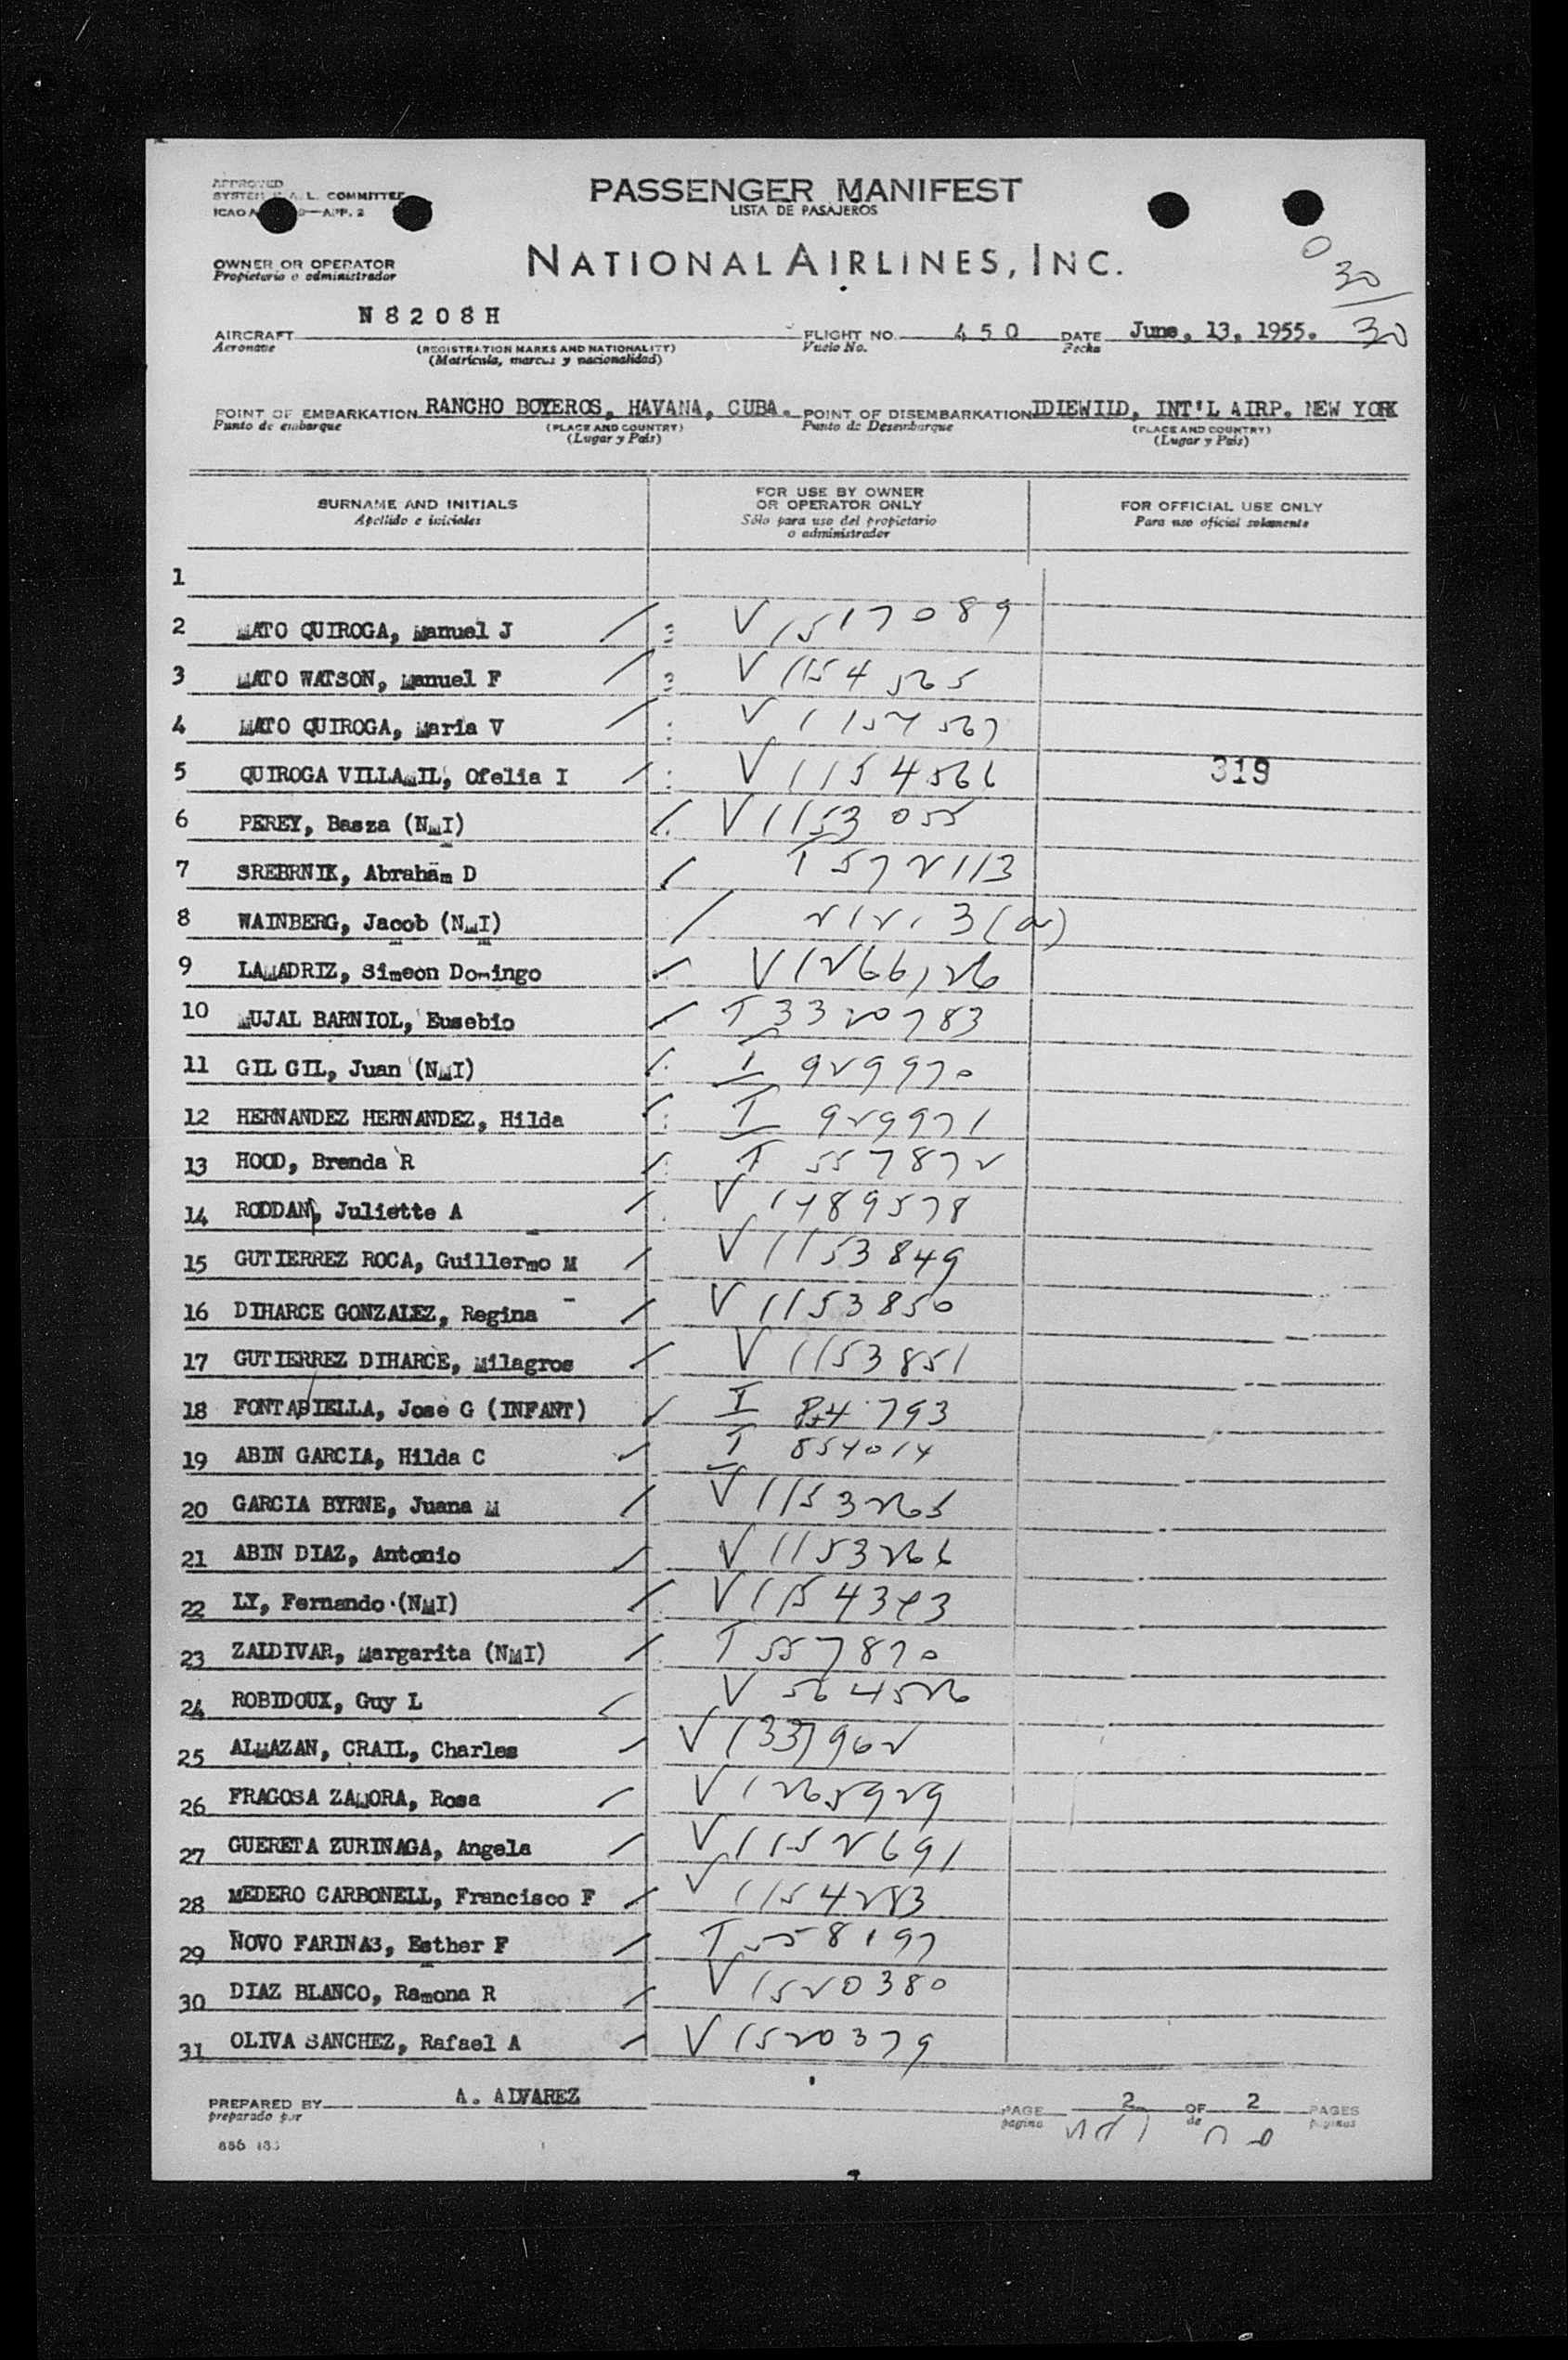 APPROVED
SYSTEM L. COMMITTEE
ICAO APP. 2
PASSENGER MANIFEST
LISTA DE PASAJEROS
OWNER OR OPERATOR
Propietario o administrador
NATIONAL AIRLINES, INC.
30
30
AIRCRAFT N 8 2 0 8 H FLIGHT NO. 4 5 0 DATE June, 13, 1955.
Aeronave (REGISTRATION MARKS AND NATIONALITY) Vuelo No. Fecha
(Matrícula, marcas y nacionalidad)
POINT OF EMBARKATION RANCHO BOYEROS, HAVANA, CUBA. POINT OF DISEMBARKATION IDIEWILD, INT'L AIRP. NEW YORK
Punto de embarque (PLACE AND COUNTRY) Punto de Desembarque (PLACE AND COUNTRY)
(Lugar y País) (Lugar y País)
SURNAME AND INITIALS FOR USE BY OWNER OR OPERATOR ONLY FOR OFFICIAL USE ONLY
Apellido e iniciales Sólo para uso del propietario o administrador Para uso oficial solamente
1
2 MATO QUIROGA, Manuel J V 1517089
3 MATO WATSON, Manuel F V 1154565
4 MATO QUIROGA, Maria V V 1154567
5 QUIROGA VILLAMIL, Ofelia I V 1154566 319
6 PEREY, Basza (NMI) V 1153055
7 SREBRNIK, Abraham D T 572113
8 WAINBERG, Jacob (NMI)
9 LAMADRIZ, Simeon Domingo V 1266126
10 MUJAL BARNIOL, Eusebio T 3320783
11 GIL GIL, Juan (NMI) I 929970
12 HERNANDEZ HERNANDEZ, Hilda I 929971
13 HOOD, Brenda R T 557872
14 RODDAN, Juliette A V 1489578
15 GUTIERREZ ROCA, Guillermo M V 1153849
16 DIHARCE GONZALEZ, Regina V 1153850
17 GUTIERREZ DIHARCE, Milagros V 1153851
18 FONTABIELLA, Jose G (INFANT) I 854793
19 ABIN GARCIA, Hilda C I 854014
20 GARCIA BYRNE, Juana M V 1153265
21 ABIN DIAZ, Antonio V 1153266
22 LY, Fernando (NMI)
23 ZALDIVAR, Margarita (NMI) T 557870
24 ROBIDOUX, Guy L V 564526
25 ALMAZAN, CRAIL, Charles V 1337962
26 FRAGOSA ZAMORA, Rosa V 1265929
27 GUERETA ZURINAGA, Angela V 1152691
28 MEDERO CARBONELL, Francisco F V 1154283
29 NOVO FARINAS, Esther F T 558197
30 DIAZ BLANCO, Ramona R V 1520380
31 OLIVA SANCHEZ, Rafael A V 1520379
PREPARED BY A. ALVAREZ PAGE 2 OF 2 PAGES
preparado por pagina de páginas